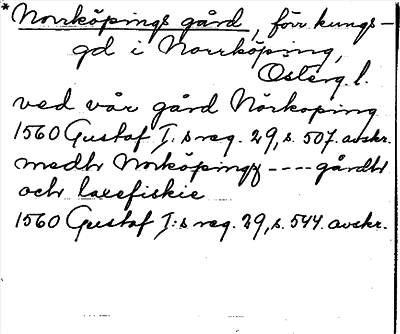 * Norrköpings gård, förr kungs-
gd i Norrköping,
Österg. l.
ved vår gård Nörkoping
1560 Gustaf I:s reg. 29, s. 507. avskr.
medhr Norköpingz ---- gårdhr
ochr laxefiskie
1560 Gustaf I:s reg. 29, s. 544. avskr.